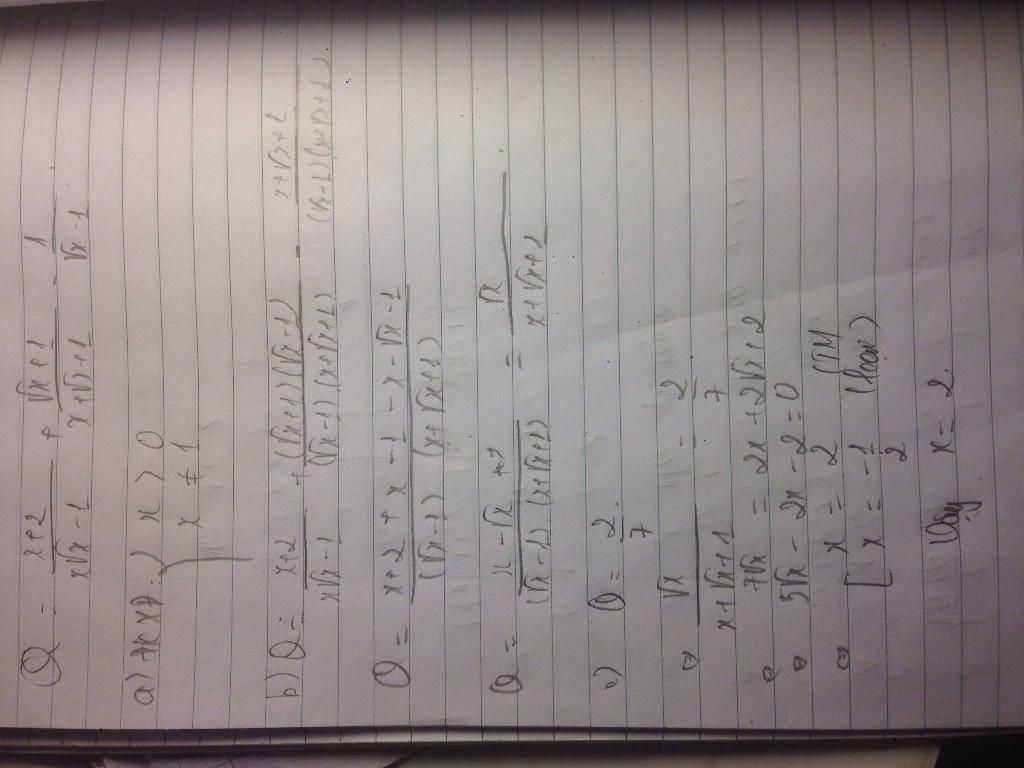 Q = \frac{x+2}{x√x-1} + \frac{√x+1}{x+√x+1} - \frac{1}{√x-1}
a) x > 0
x ≠ 1
b) Q = \frac{x+2}{x√x-1} + \frac{(√x+1)(√x-1)}{(√x-1)(x+√x+1)} - \frac{x+√x+1}{(√x-1)(x+√x+1)}
Q = \frac{x+2+x-1-x-√x-1}{(√x-1)(x+√x+1)}
Q = \frac{x-√x}{(√x-1).(x+√x+1)} = \frac{√x}{x+√x+1}.
c) Q = \frac{2}{7}.
⇔ \frac{√x}{x+√x+1} = \frac{2}{7}
⇔ 7√x = 2x+2√x+2
⇔ 5√x - 2x - 2 = 0
⇔ [ x = 2 (TM
x = -\frac{1}{2} (loại)
Vậy x = 2.